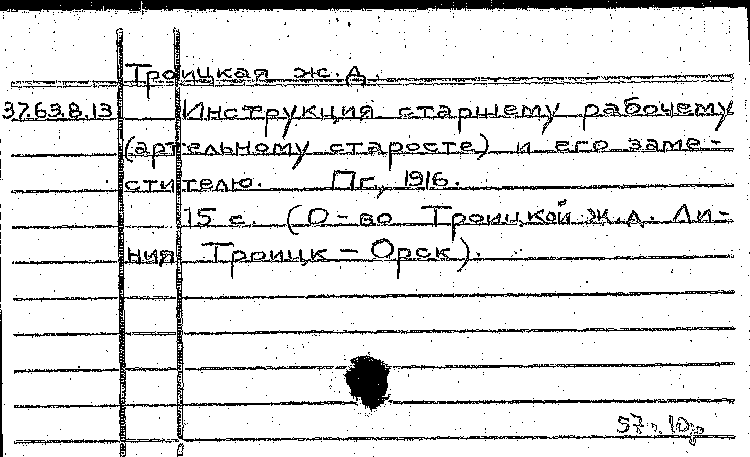 Троицкая ж.д.
37.63.8.13 Инструкция старшему рабочему
(артельному старосте) и его заме-
стителю. Пг., 1916.
15 с. (О-во Троицкой ж.д. Ли-
ния Троицк – Орск).